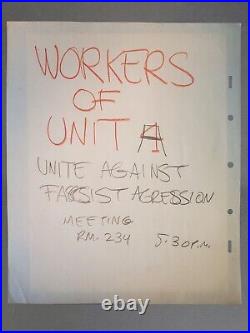 WORKERS
OF
UNIT A
UNITE AGAINST
FASSIST AGRESSION
MEETING
RM. 234 5:30 P.M.
vtg-photos.com